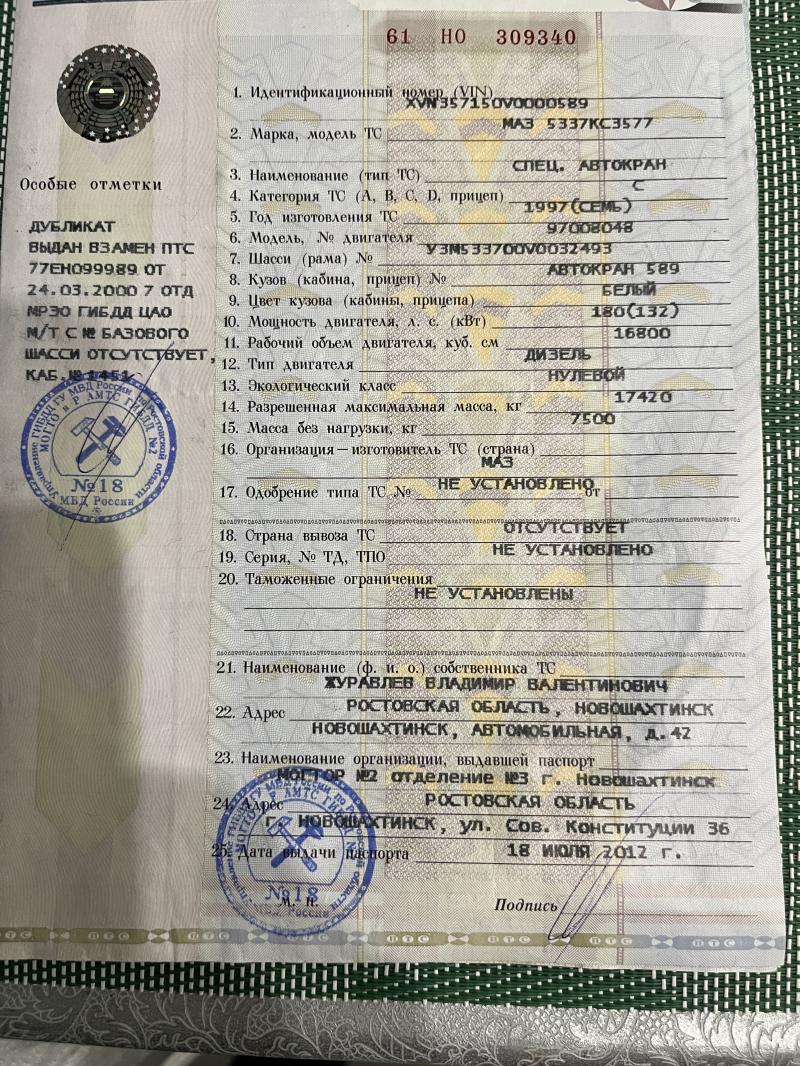 61 НО 309340
1. Идентификационный номер (VIN) XVN357150V0000589
2. Марка, модель ТС МАЗ 5337КС3577
3. Наименование (тип ТС) СПЕЦ. АВТОКРАН
4. Категория ТС (A, B, C, D, прицеп) С
5. Год изготовления ТС 1997(СЕМЬ)
6. Модель, № двигателя 97008048
7. Шасси (рама) № У3М533700V0032493
8. Кузов (кабина, прицеп) № АВТОКРАН 589
9. Цвет кузова (кабины, прицепа) БЕЛЫЙ
10. Мощность двигателя, л. с. (кВт) 180(132)
11. Рабочий объем двигателя, куб. см 16800
12. Тип двигателя ДИЗЕЛЬ
13. Экологический класс НУЛЕВОЙ
14. Разрешенная максимальная масса, кг 17420
15. Масса без нагрузки, кг 7500
16. Организация—изготовитель ТС (страна)
МАЗ
17. Одобрение типа ТС № НЕ УСТАНОВЛЕНО от
18. Страна вывоза ТС ОТСУТСТВУЕТ
19. Серия, № ТД, ТПО НЕ УСТАНОВЛЕНО
20. Таможенные ограничения
НЕ УСТАНОВЛЕНЫ
21. Наименование (ф. и. о.) собственника ТС
ЖУРАВЛЕВ ВЛАДИМИР ВАЛЕНТИНОВИЧ
22. Адрес РОСТОВСКАЯ ОБЛАСТЬ, НОВОШАХТИНСК
НОВОШАХТИНСК, АВТОМОБИЛЬНАЯ, д.42
23. Наименование организации, выдавшей паспорт
МОГТОР №2 отделение №3 г. Новошахтинск
24. Адрес РОСТОВСКАЯ ОБЛАСТЬ
г. НОВОШАХТИНСК, ул. Сов. Конституции 36
25. Дата выдачи паспорта 18 ИЮЛЯ 2012 г.
М. п.
Подпись
Особые отметки
ДУБЛИКАТ
ВЫДАН ВЗАМЕН ПТС
77ЕН099989 ОТ
24.03.2000 7 ОТД
МРЭО ГИБДД ЦАО
М/Т С № БАЗОВОГО
ШАССИ ОТСУТСТВУЕТ,
КАБ.№1451
Управление ГИБДД ГУ МВД России по Ростовской области
МОГТО и Р АМТС ГИБДД №2
№18
МВД России
№18
МВД России
ПТС ПТС ПТС ПТС ПТС ПТС